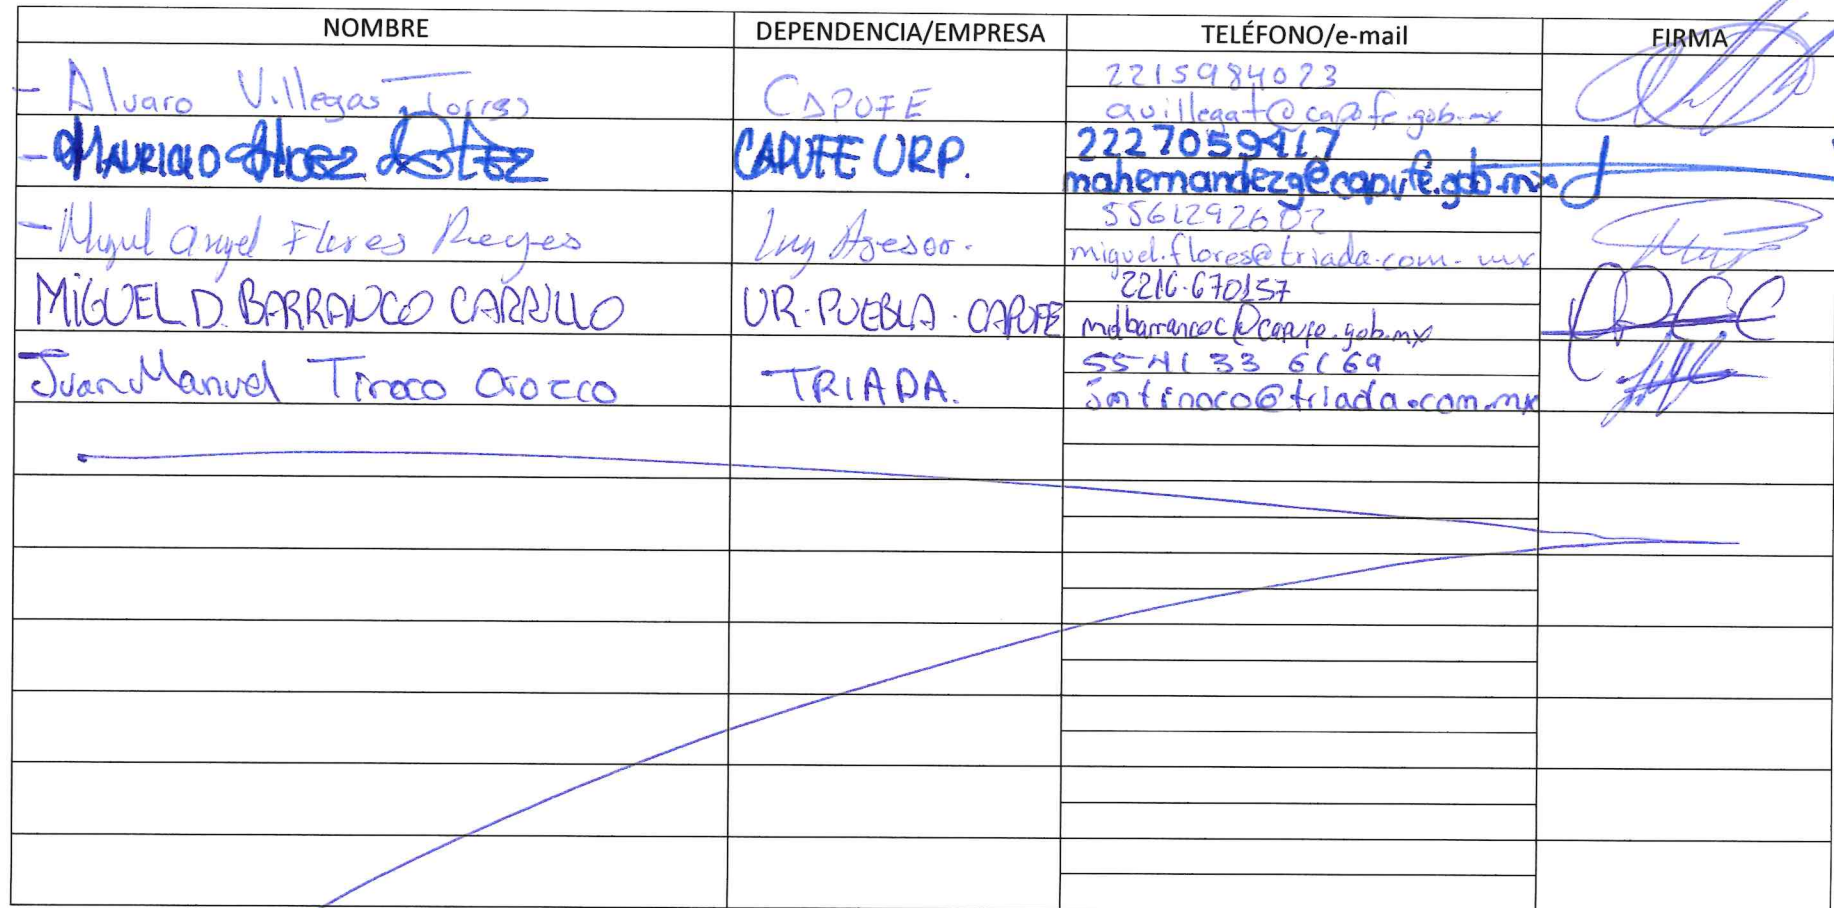 NOMBRE DEPENDENCIA/EMPRESA TELÉFONO/e-mail FIRMA
- Alvaro Villegas Torres CAPUFE 2215984023
avillegat@capufe.gob.mx
- MAURICIO CAPUFE URP. 2227059417
mahernandezg@capufe.gob.mx
- Miguel Angel Flores Reyes Ing Asesor. 5561292602
miguel.flores@triada.com.mx
MIGUEL D. BARRANCO CARRILLO UR.PUEBLA.CAPUFE 2216.670157
mdbarrancoc@capufe.gob.mx
Juan Manuel Tinoco Orozco TRIADA. 5541 33 6169
jmtinoco@triada.com.mx